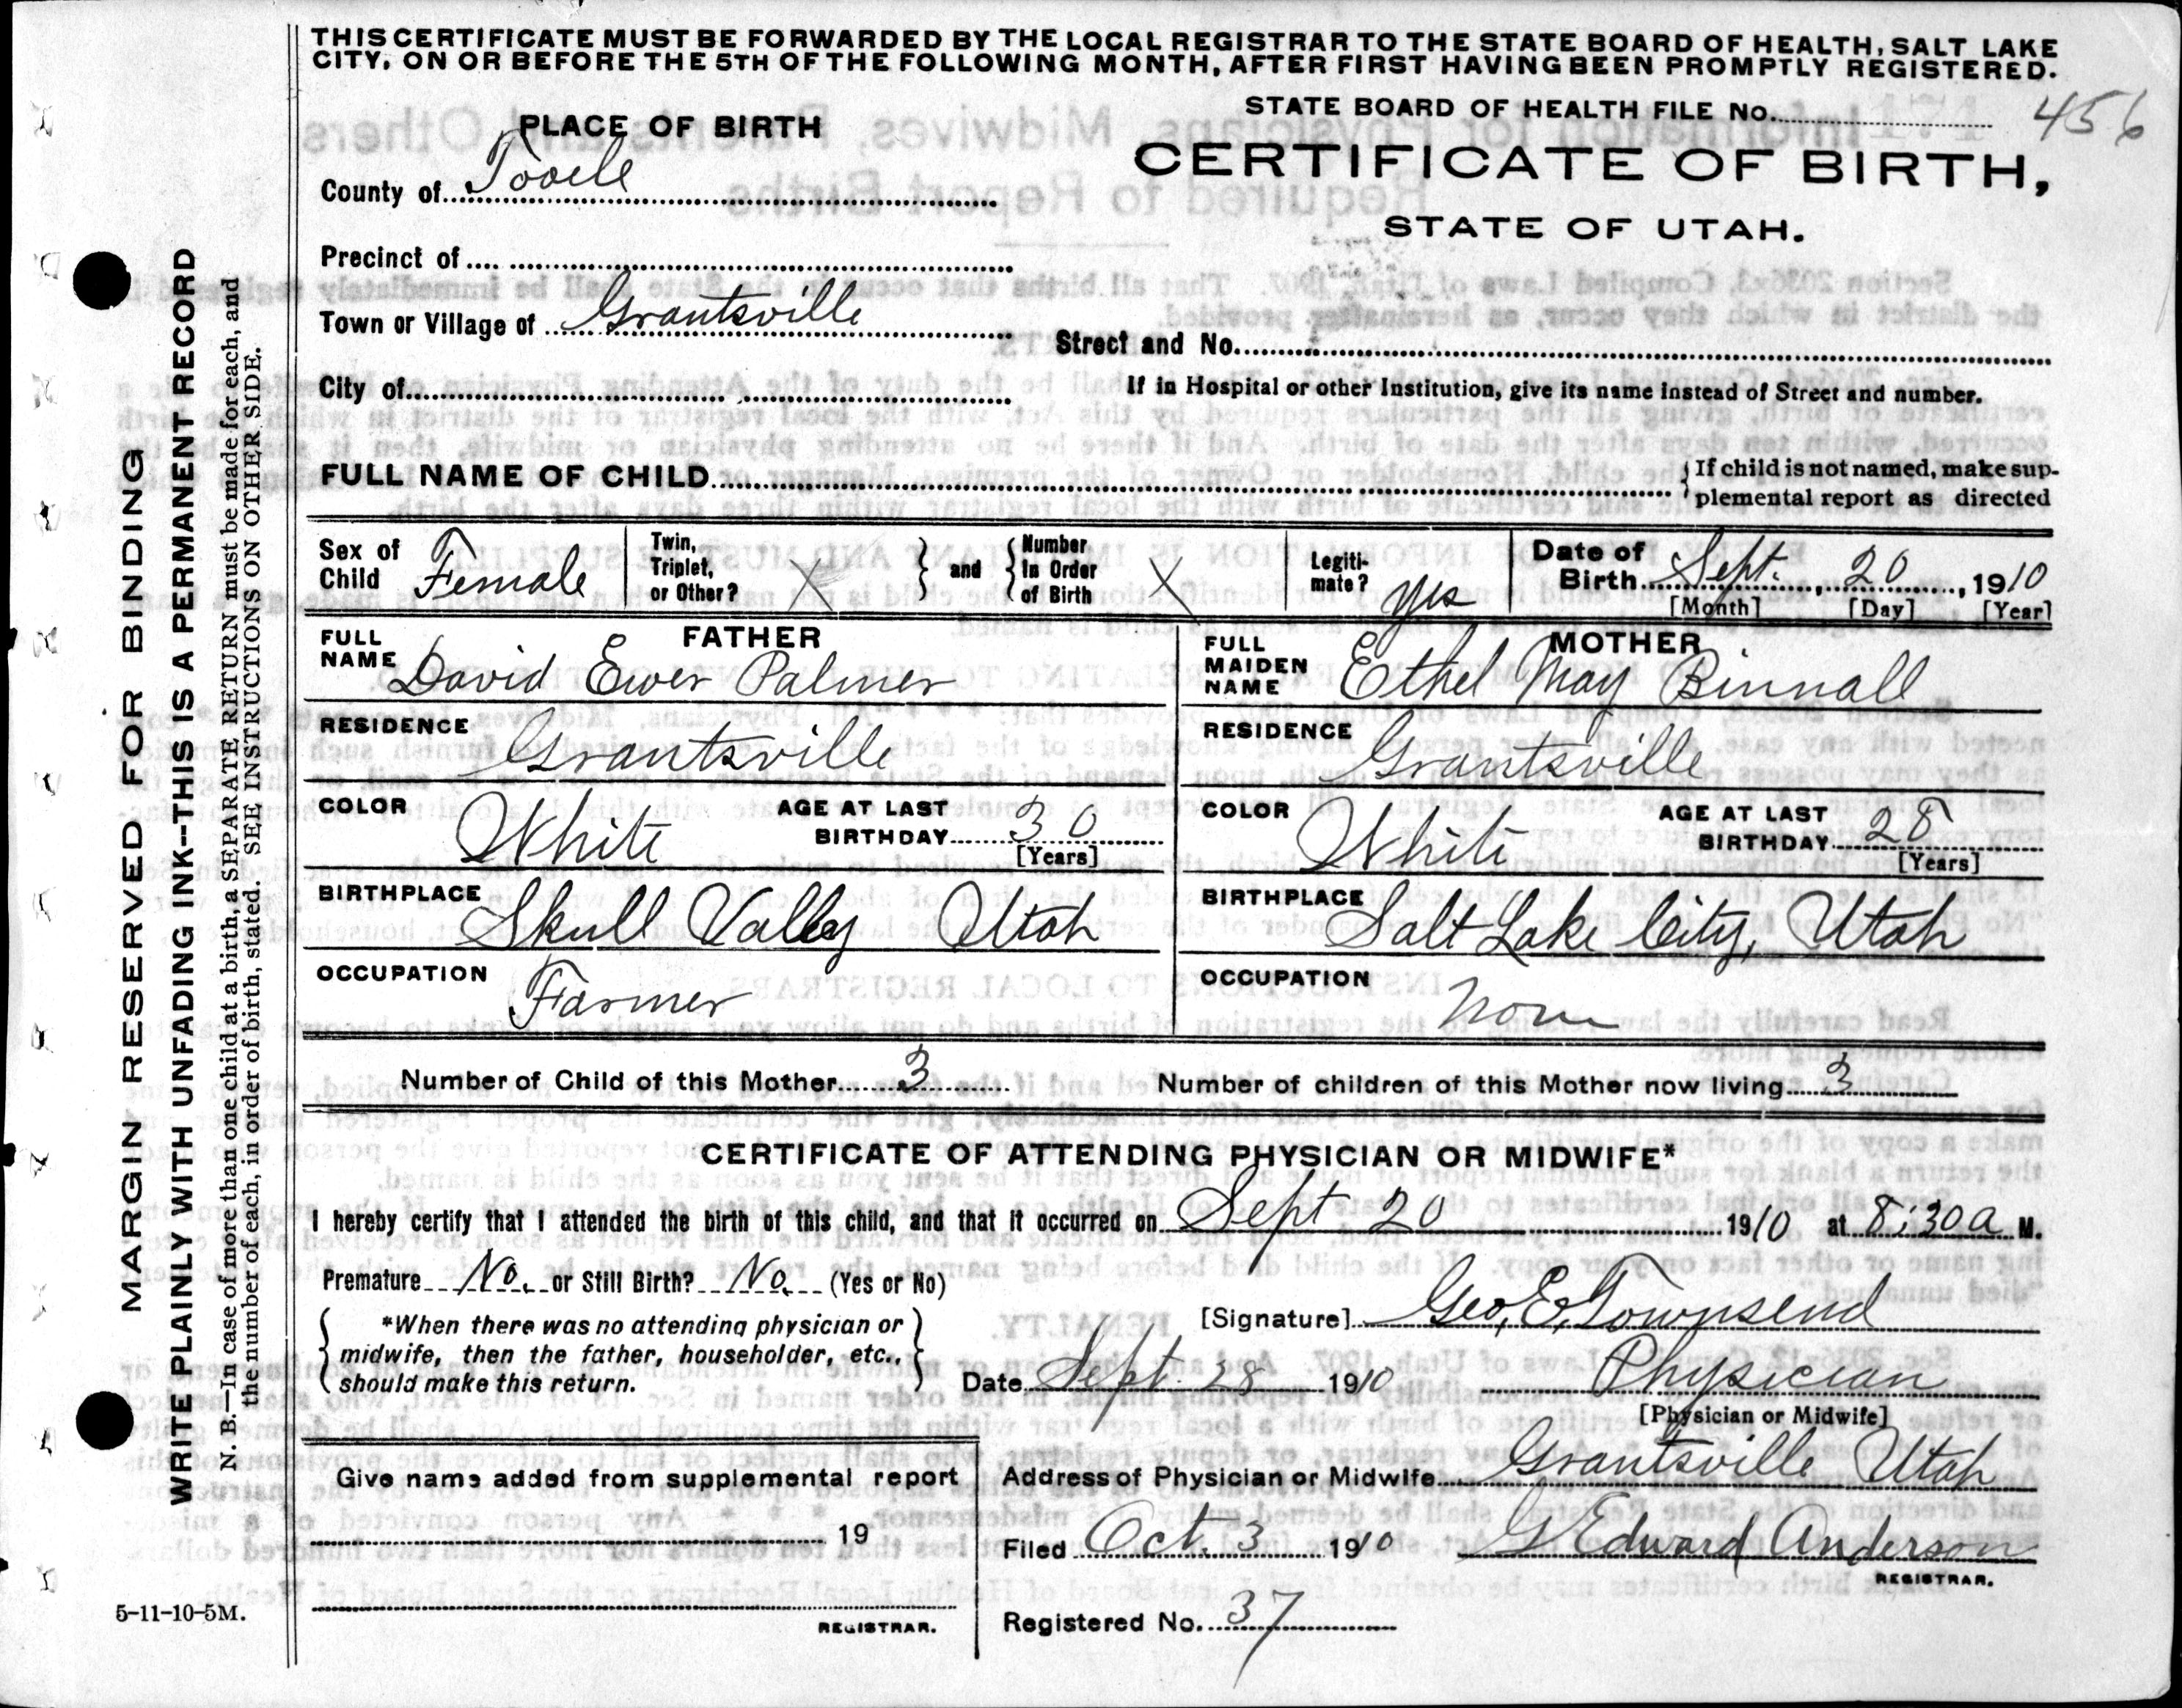 THIS CERTIFICATE MUST BE FORWARDED BY THE LOCAL REGISTRAR TO THE STATE BOARD OF HEALTH, SALT LAKE
CITY, ON OR BEFORE THE 5TH OF THE FOLLOWING MONTH, AFTER FIRST HAVING BEEN PROMPTLY REGISTERED.
STATE BOARD OF HEALTH FILE No. 456
PLACE OF BIRTH
CERTIFICATE OF BIRTH,
STATE OF UTAH.
County of Tooele
Precinct of
Town or Village of Grantsville
Street and No.
City of
If in Hospital or other Institution, give its name instead of Street and number.
FULL NAME OF CHILD
If child is not named, make sup-
plemental report as directed
Sex of Child Female
Twin, Triplet, or Other? X
and
Number In Order of Birth X
Legiti-mate? yes
Date of Birth Sept. 20, 1910
[Month] [Day] [Year]
FATHER
FULL NAME David Ewer Palmer
RESIDENCE Grantsville
COLOR White AGE AT LAST BIRTHDAY 30
[Years]
BIRTHPLACE Skull Valley Utah
OCCUPATION Farmer
MOTHER
FULL MAIDEN NAME Ethel May Binnall
RESIDENCE Grantsville
COLOR White AGE AT LAST BIRTHDAY 28
[Years]
BIRTHPLACE Salt Lake City, Utah
OCCUPATION None
Number of Child of this Mother 3
Number of children of this Mother now living 3
CERTIFICATE OF ATTENDING PHYSICIAN OR MIDWIFE*
I hereby certify that I attended the birth of this child, and that it occurred on Sept 20 1910 at 8:30 a M.
Premature No. or Still Birth? No. (Yes or No)
*When there was no attending physician or
midwife, then the father, householder, etc.,
should make this return.
[Signature] Geo. E. Townsend
Date Sept. 28 1910 Physician
[Physician or Midwife]
Give name added from supplemental report
19
REGISTRAR.
Address of Physician or Midwife Grantsville Utah
Filed Oct. 3 1910 G Edward Anderson
REGISTRAR.
Registered No. 37
5-11-10-5M.
MARGIN RESERVED FOR BINDING
WRITE PLAINLY WITH UNFADING INK--THIS IS A PERMANENT RECORD
N. B.—In case of more than one child at a birth, a SEPARATE RETURN must be made for each, and
the number of each, in order of birth, stated. SEE INSTRUCTIONS ON OTHER SIDE.